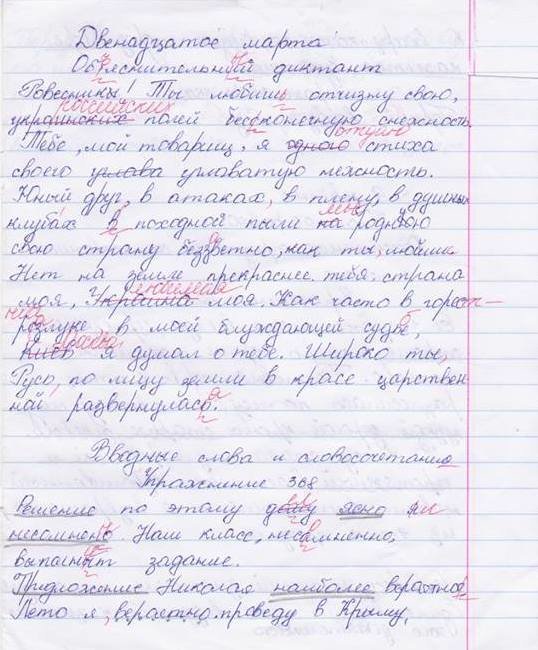 Двенадцатое марта
Объяснительный диктант
Ровесники! Ты любишь отчизну свою,
российских
украинских полей бесконечную снежность.
отдую
Тебе, мой товарищ, я одного стиха
своего углава угловатую нежность.
Юный друг, в атаках, в плену, в душных
клубах в походной пыли на родную
свою страну беззветно, как ты, любим.
Нет на земле прекраснее тебя страна
любимая
моя, Украина моя. Как часто в горест-
ной
разлуке в моей блуждающей судьбе,
Москва
Киев я думал о тебе. Широко ты,
Русь, по лицу земли в красе царствен-
ной развернулась.
Вводные слова и словосочетание
Упражнение 368
Решение по этому делу ясно и
несомнено. Наш класс, несомненно,
выполнит задание.
Предложение Николая наиболее вероятное
Лето я, вероятно, проведу в Крыму,